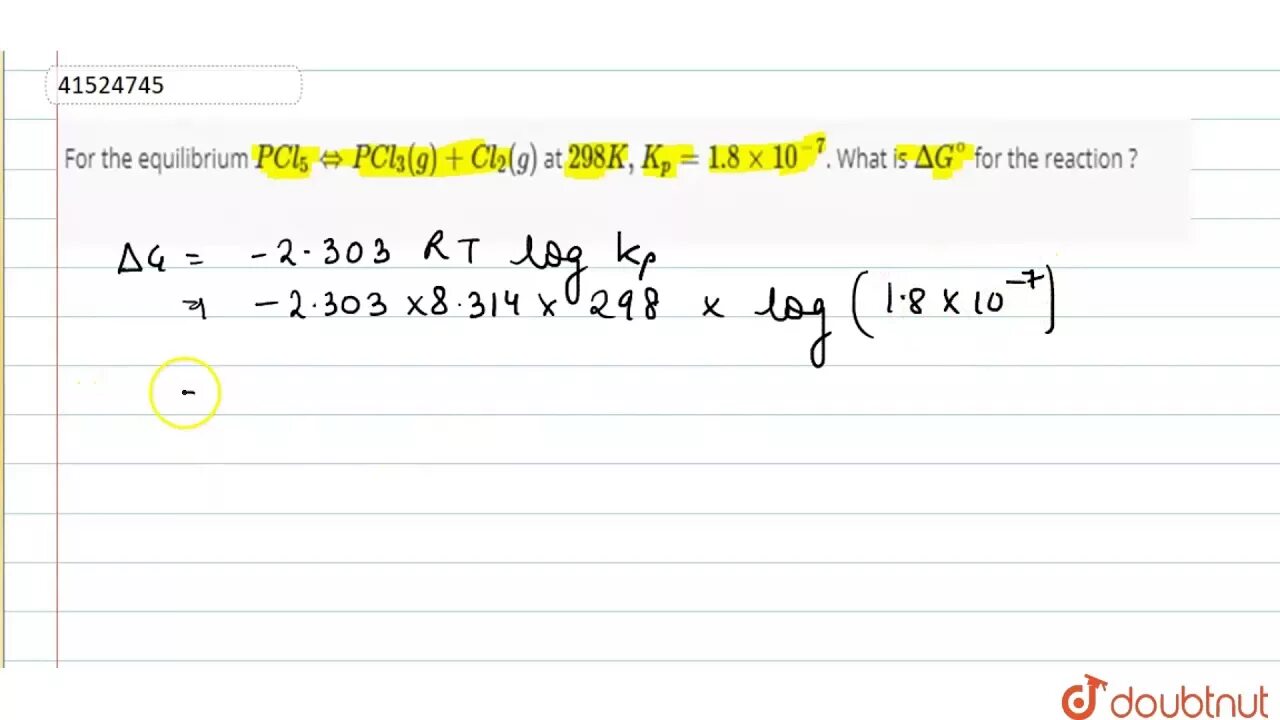 41524745
For the equilibrium PCl₅ ⇔ PCl₃(g) + Cl₂(g) at 298K, Kₚ = 1.8 × 10⁻⁷. What is ΔG° for the reaction ?
ΔG = -2.303 RT log Kp
⇒ -2.303 × 8.314 × 298 × log (1.8 × 10⁻⁷)
=
doubtnut